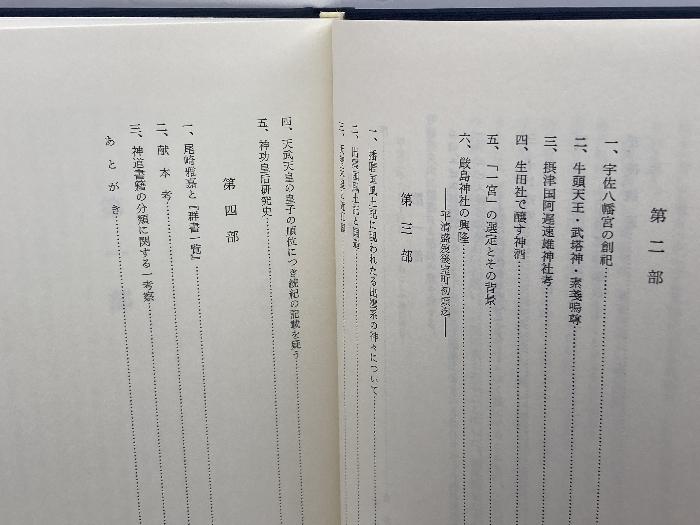 第二部
一、宇佐八幡宮の創祀
二、牛頭天王・武塔神・素戔嗚尊
三、摂津国阿遅速雄神社考
四、生田社で醸す神酒
五、「一宮」の選定とその背景
六、厳島神社の興隆
第三部
一、播磨国風土記に現われたる出雲系の神々について
四、天武天皇の皇子の順位につき続紀の記載を疑う
五、神功皇后研究史
第四部
一、尾崎雅嘉と『群書一覧』
二、献本考
三、神道書籍の分類に関する一考察
あとがき